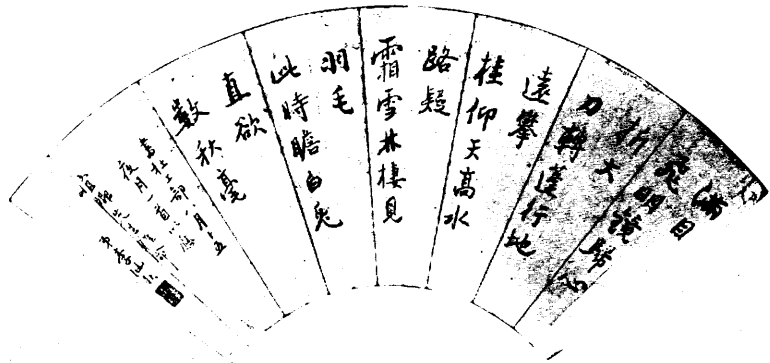 滿目
飛明鏡歸心
折大
刀轉蓬行地
遠攀
桂仰天高水
路疑
霜雪林棲見
羽毛
此時瞻白兔
直欲
數秋毫
書杜工部八月十五
夜月一首以應
先生雅命
弟李仙根